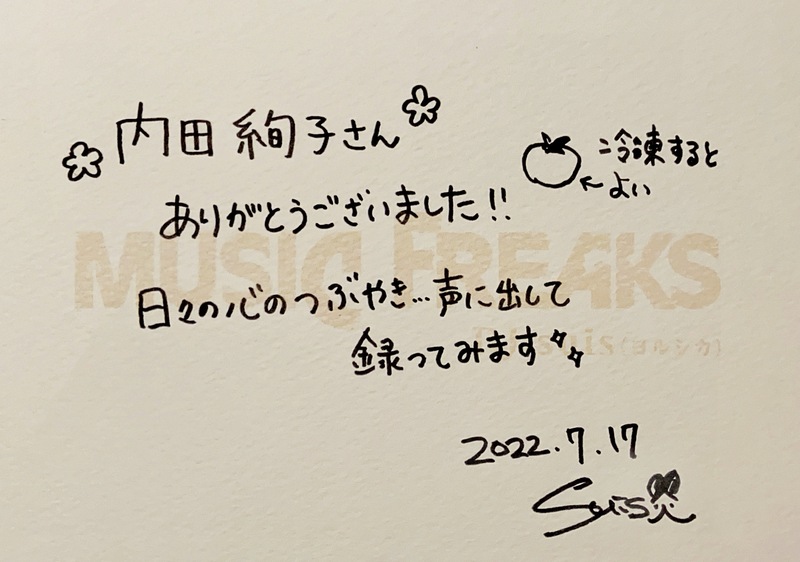 内田 絢子さん
ありがとうございました!!
冷凍すると
よい
MUSIQ FREAKS
suis(ヨルシカ)
日々の心のつぶやき…声に出して
録ってみます
2022.7.17
suis